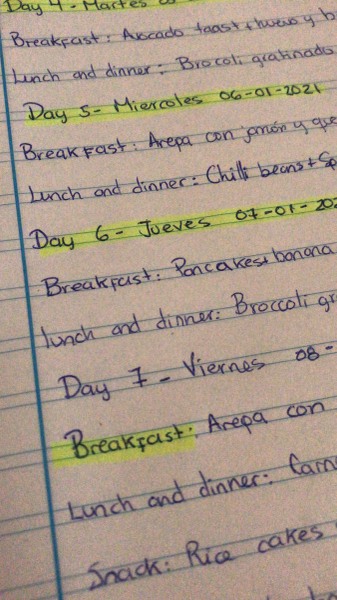 Day 4 - Martes
Breakfast: Avocado toast + huevo y
Lunch and dinner: Brocoli gratinado
Day 5 - Miercoles 06-01-2021
Breakfast: Arepa con jamón y que
Lunch and dinner: Chilli beans + Sp
Day 6 - Jueves 07-01-202
Breakfast: Pancakes + banana
lunch and dinner: Broccoli gr
Day 7 - Viernes 08-
Breakfast: Arepa con
Lunch and dinner: Carn
Snack: Rice cakes